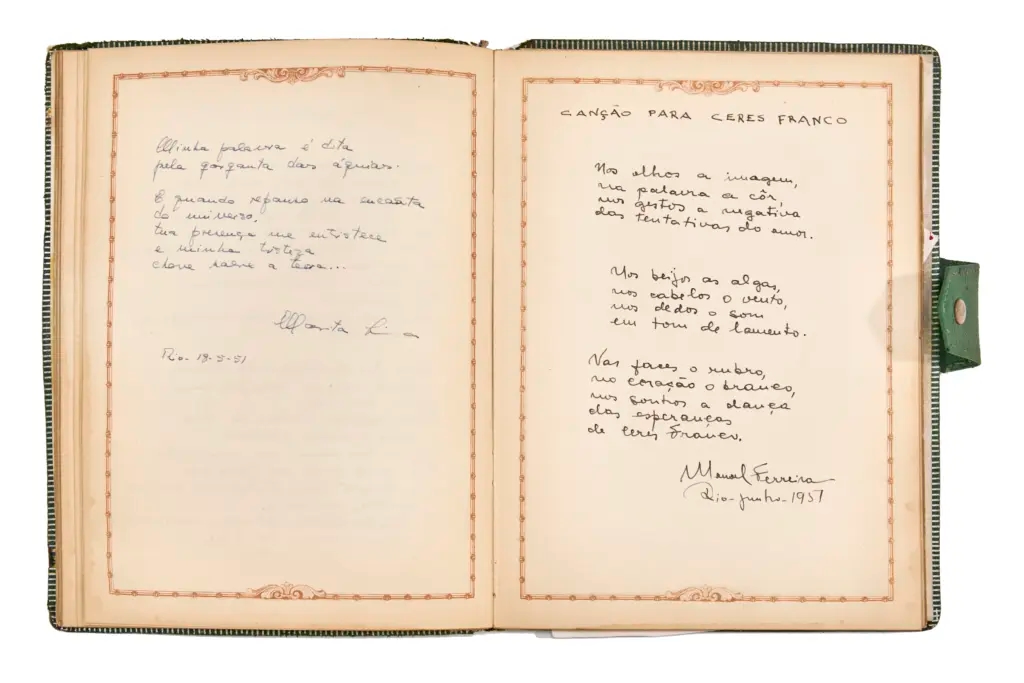 Minha palavra é dita
pela garganta das águias.
E quando repouso na encosta
do universo,
tua presença me entristece
e minha tristeza
chove sobre a terra...
Rio - 18-5-51
CANÇÃO PARA CERES FRANCO
Nos olhos a imagem,
na palavra a côr,
nos gestos a negativa
das tentativas do amor.
Nos beijos as algas,
nos cabelos o vento,
nos dedos o som
em tom de lamento.
Nas faces o rubro,
no coração o branco,
nos sonhos a dança
das esperanças
de Ceres Franco.
Manoel Ferreira
Rio - junho - 1951